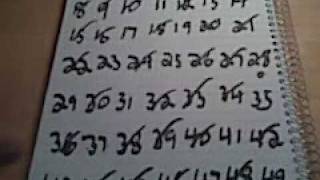 8 9 10 11 12 13 14
15 16 17 18 19 20 21
22 23 24 25 26 27 28
29 30 31 32 33 34 35
36 37 38 39 40 41 42
47 48 49